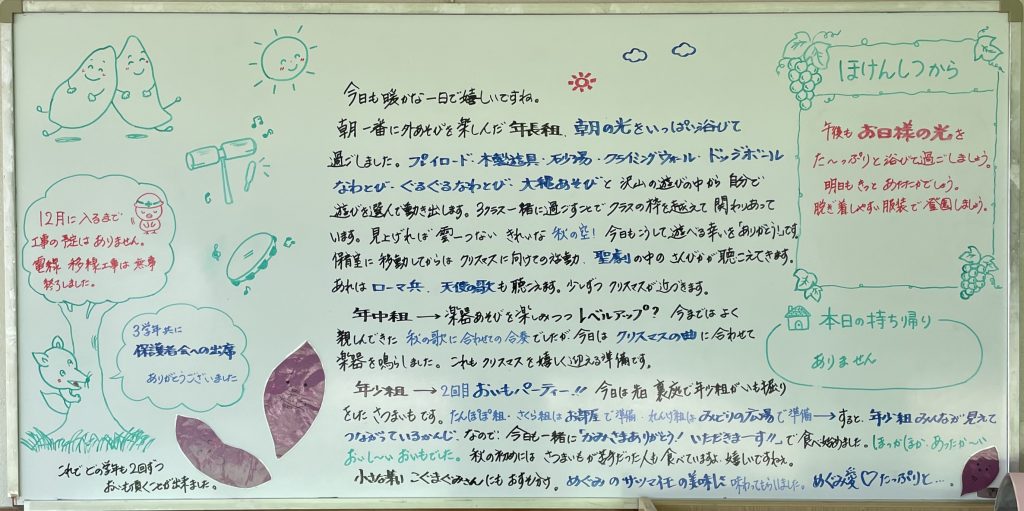 今日も暖かな一日で嬉しいですね。
朝一番に外あそびを楽しんだ年長組、朝の光をいっぱい浴びて
過ごしました。プレイロード・木製遊具・砂場・クライミングウォール・ドッジボール
なわとび・ぐるぐるなわとび・大縄あそびと沢山の遊びの中から自分で
遊びを選んで動き出します。3クラス一緒に過ごすことでクラスの枠を越えて関わりあって
います。見上げれば雲一つない きれいな秋の空！今日もこうして遊べる幸いをありがとう！です。
保育室に移動してからは クリスマスに向けての活動、聖劇の中のさんびかが聴こえてきます。
あれはローマ兵、天使の歌も聴こえます。少しずつクリスマスが近づきます。
年中組→楽器あそびを楽しみつつレベルアップ？今まではよく
親しんできた 秋の歌に合わせての合奏でしたが、今日は クリスマスの曲に合わせて
楽器を鳴らしました。これもクリスマスを嬉しく迎える準備です。
年少組→2回目おいもパーティー!! 今日は 裏庭で年少組がいも掘り
をしたさつまいもです。たんぽぽ組・さくら組はお部屋で準備・れんげ組はみどりの広場で準備→すると、年少組みんなが見えて
つながっているかんじ、なので、今日も一緒に“かみさまありがとう！いただきまーす!!”で食べ始めました。ほっかほか、あったか〜い
おい、し〜い おいもでした。秋の初めには さつまいもが苦手だった人も食べていますよ、嬉しいですねぇ。
小さな弟 こぐまぐみさんにもおすそわけ。めぐみのサツマイモの美味しさ 味わってもらいました。めぐみ愛♡たっぷりと…。
12月に入るまで
工事の予定はありません。
電線 移線工事は無事
終了しました。
3学年共に
保護者会への出席
ありがとうございました
これで どの学年も2回ずつ
おいも頂くことが出来ました。
ほけんしつから
午後もお日様の光を
た〜っぷりと浴びて過ごしましょう。
明日もきっと あたたかでしょう。
脱ぎ着しやすい服装で登園しましょう。
本日の持ち帰り
ありません